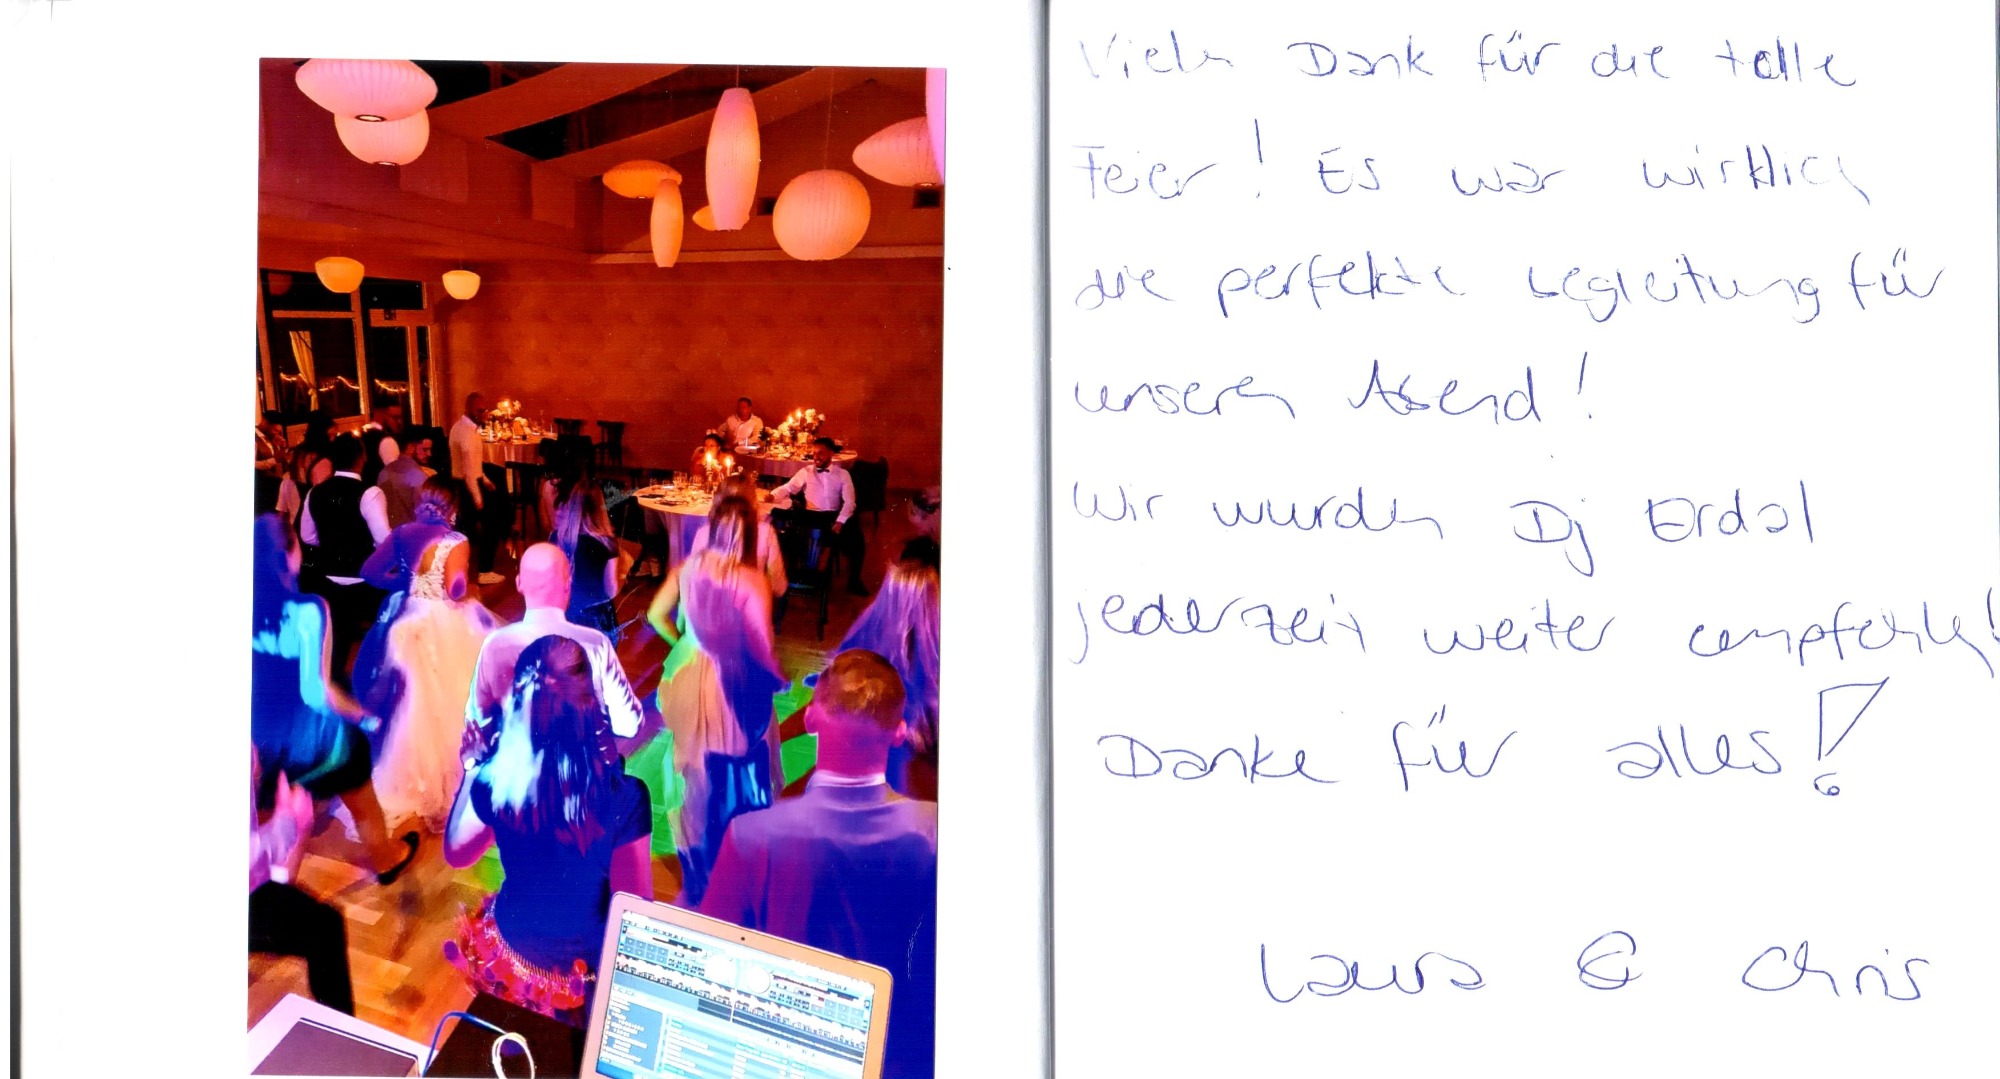 Vielen Dank für die tolle
Feier! Es war wirklich
die perfekte Begleitung für
unseren Abend!
Wir wurden Dj Erdal
jederzeit weiter empfehlen!
Danke für alles!
Laura & Chris